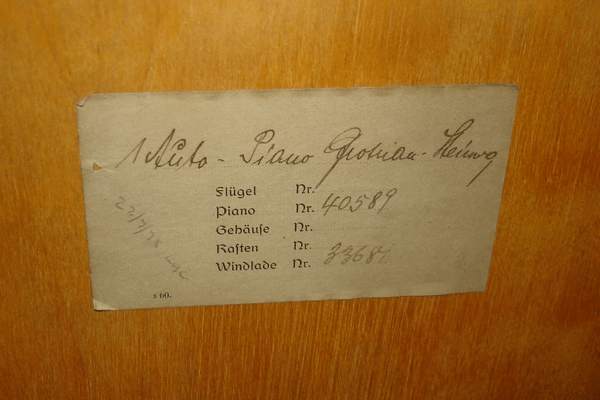 1 Auto - Piano Grotrian - Steinweg
Flügel Nr.
Piano Nr. 40589
Gehäuse Nr.
Kasten Nr.
Windlade Nr.
s 60.